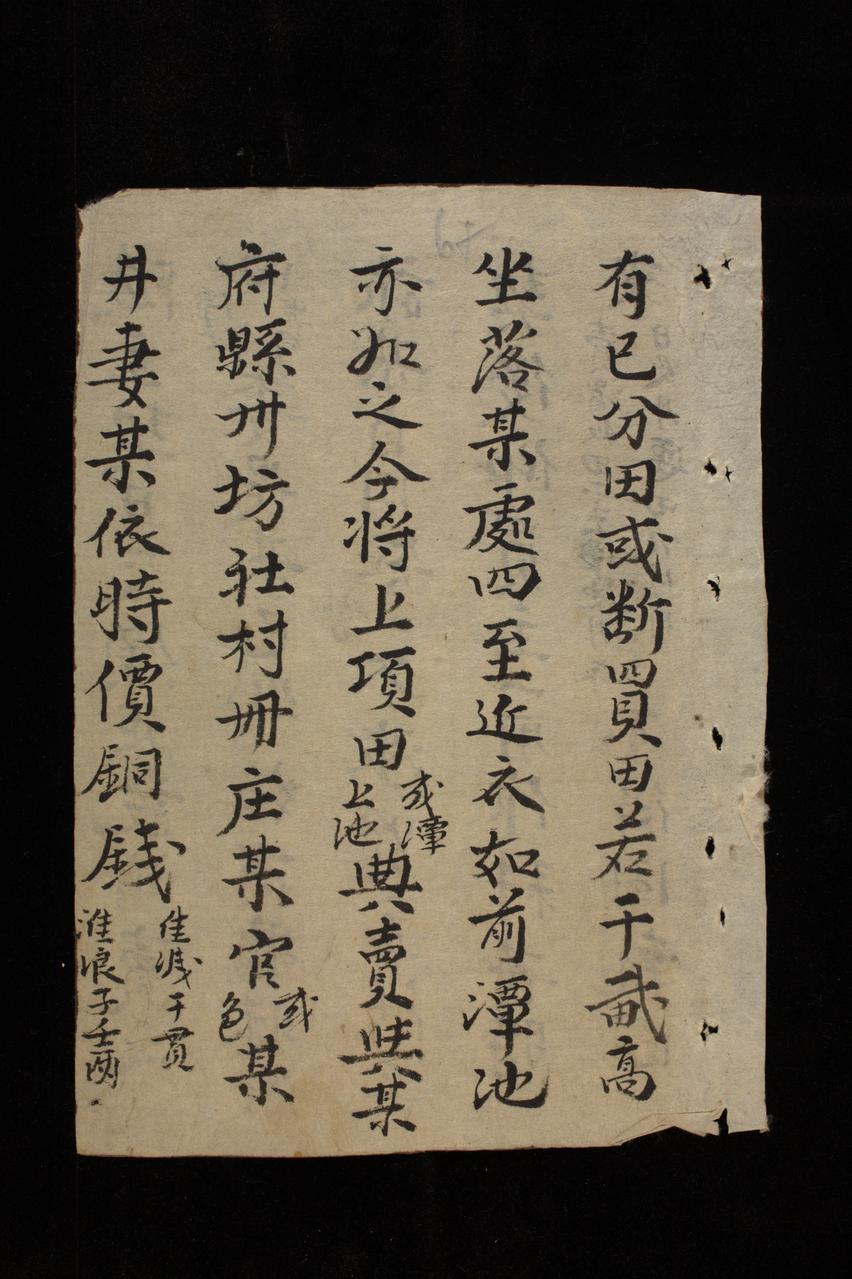 有已分田或断買田若干畝高
坐落某處四至近衣如前潭池
亦如之今将上項田或潭上池典賣與某
府縣卅坊社村冊庄某官或色某
井妻某依時價銅錢